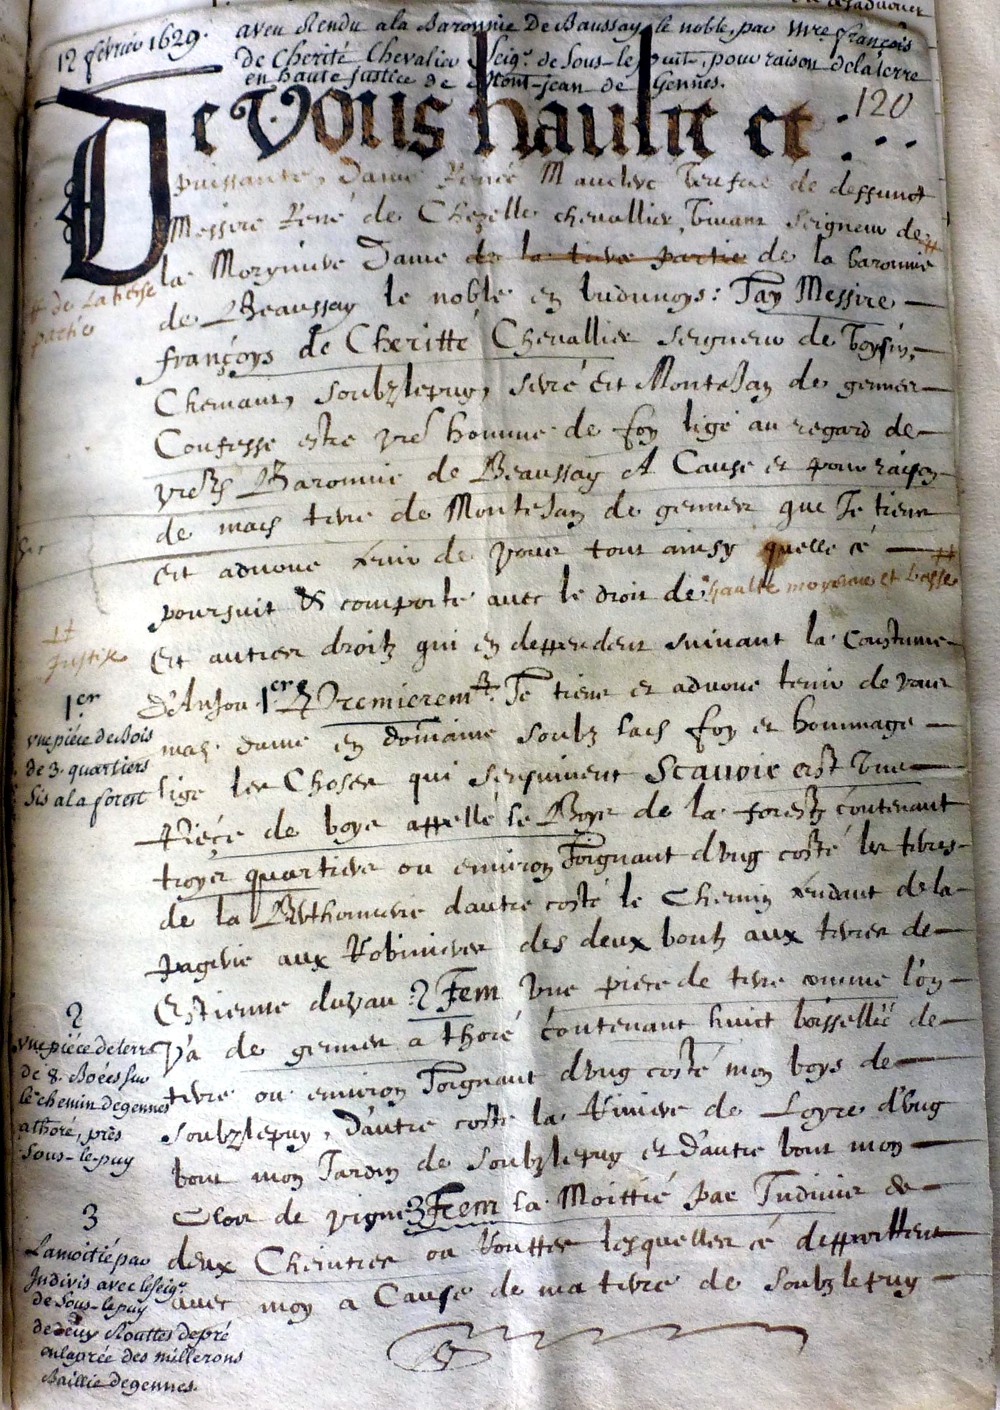 12 février 1629. aveu Rendu a la Baronnie De Baussay le noble, par Mre. françois
de Cherité Chevalier Seigr. de Sous-le-puit, pour raison de la terre
en haute justice de Mont-jean de Gennes.
120
De Vous haulte et
puissante, Dame Renée Mauclerc veufue de deffunct
Messire René de Chezelle chevallier, vivant Seigneur de
la Morynire Dame de la tierce partie de la baronnie
# de la tierse
partie
de Beaussay le noble en ludunoys: Jay Messire
françoys de Cheritté Chevallier Seigneur de Voysin,
Chemant, Soubzlepuy, sivré et MonteJan de gennes
Confesse estre vre homme de foy lige au regard de
vred Baronnie de Beaussay A Cause et pour raison
de mad terre de MonteJan de gennes que Je tiens
et advoue tenir de vous tout ainsy quelle cé
poursuit & comporte avec le droit de haulte moyenne et basse
# Justise
Et autres droitz qui en deppendent suivant la Coustume
d'Anjou 1er Premieremt Je tiens et advoue tenir de vous
mad dame en domaine soubz lad foy et hommage
lige les Choses qui sensuivent Scavoir est Une
Piéce de boys appellé le Boys de la forest contenant
troys quartiers ou environ Joignant d'ung costé les terres
de la Berthomerie dautre costé le Chemin tendant de la
pagerie aux Robinieres des deux boutz aux terres de
Estienne duvau 2 Jtem Une piece de terre comme l'on
va de gennes a thoré contenant huict boissellée de
terre ou environ Joignant d'ung costé mon boys de
soubzlepuy, d'autre coste la Riviere de Loyre d'ung
bout mon Jardin de soubzlepuy et d'autre bout mon
Clos de vigne 3 Jtem la Moittié par Indivis de
deux Cheintres ou Routtes lesquelles cé deppartent
avec moy a Cause de ma terre de Soubzlepuy
1er
vne piéce de Bois
de 3. quartiers
Sis a la forest
2
vne piéce de terre
de 8. Boées sur
le chemin de gennes
a thoré, près
Sous-le-puy
3
La moitié par
Indivis avec le Seigr.
de Sous-le-puy
de deux Routtes de pré
en la prée des millerons
Baillie de gennes.